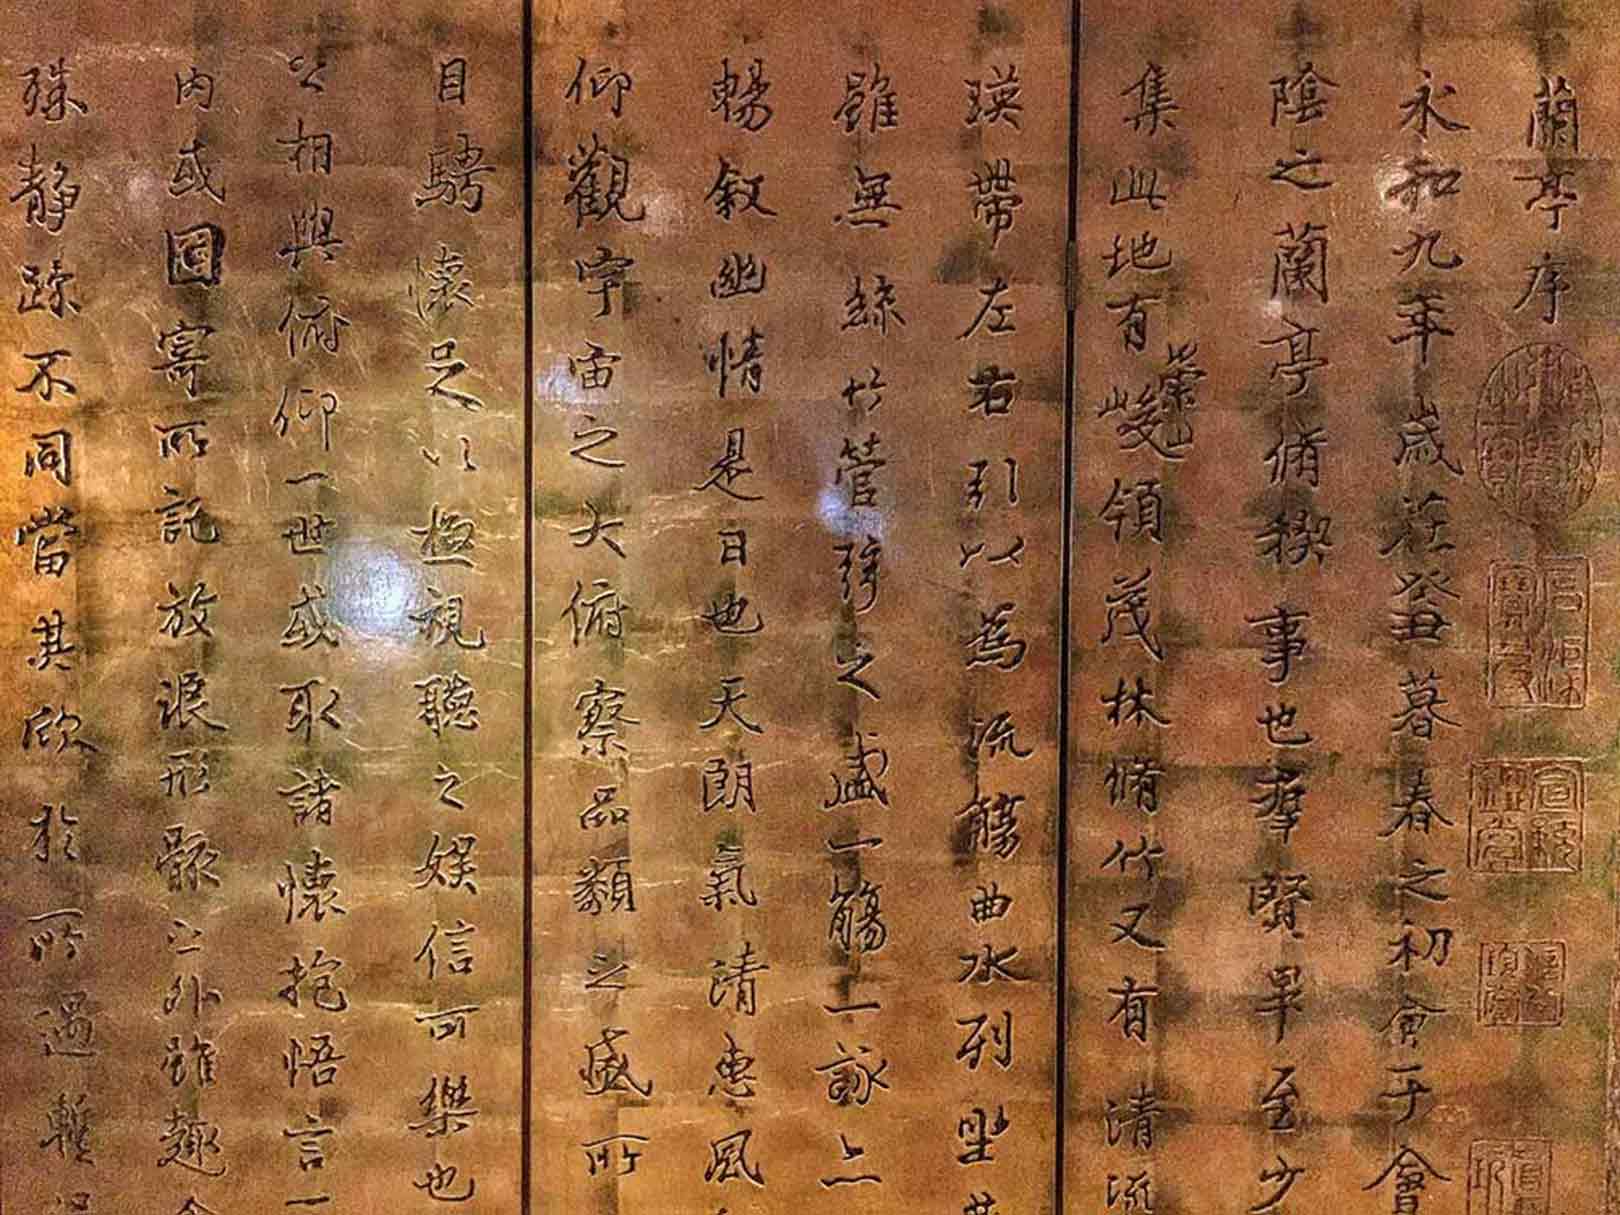 蘭亭序
永和九年歲在癸丑暮春之初會于會
陰之蘭亭脩禊事也羣賢畢至少
集此地有崇山峻領茂林脩竹又有清流
暎帶左右引以為流觴曲水列坐其
雖無絲竹管弦之盛一觴一詠亦
暢敘幽情是日也天朗氣清惠風
仰觀宇宙之大俯察品類之盛所
目騁懷足以極視聽之娛信可樂也
之相與俯仰一世或取諸懷抱悟言一
內或因寄所託放浪形骸之外雖趣
殊靜躁不同當其欣於所遇暫得